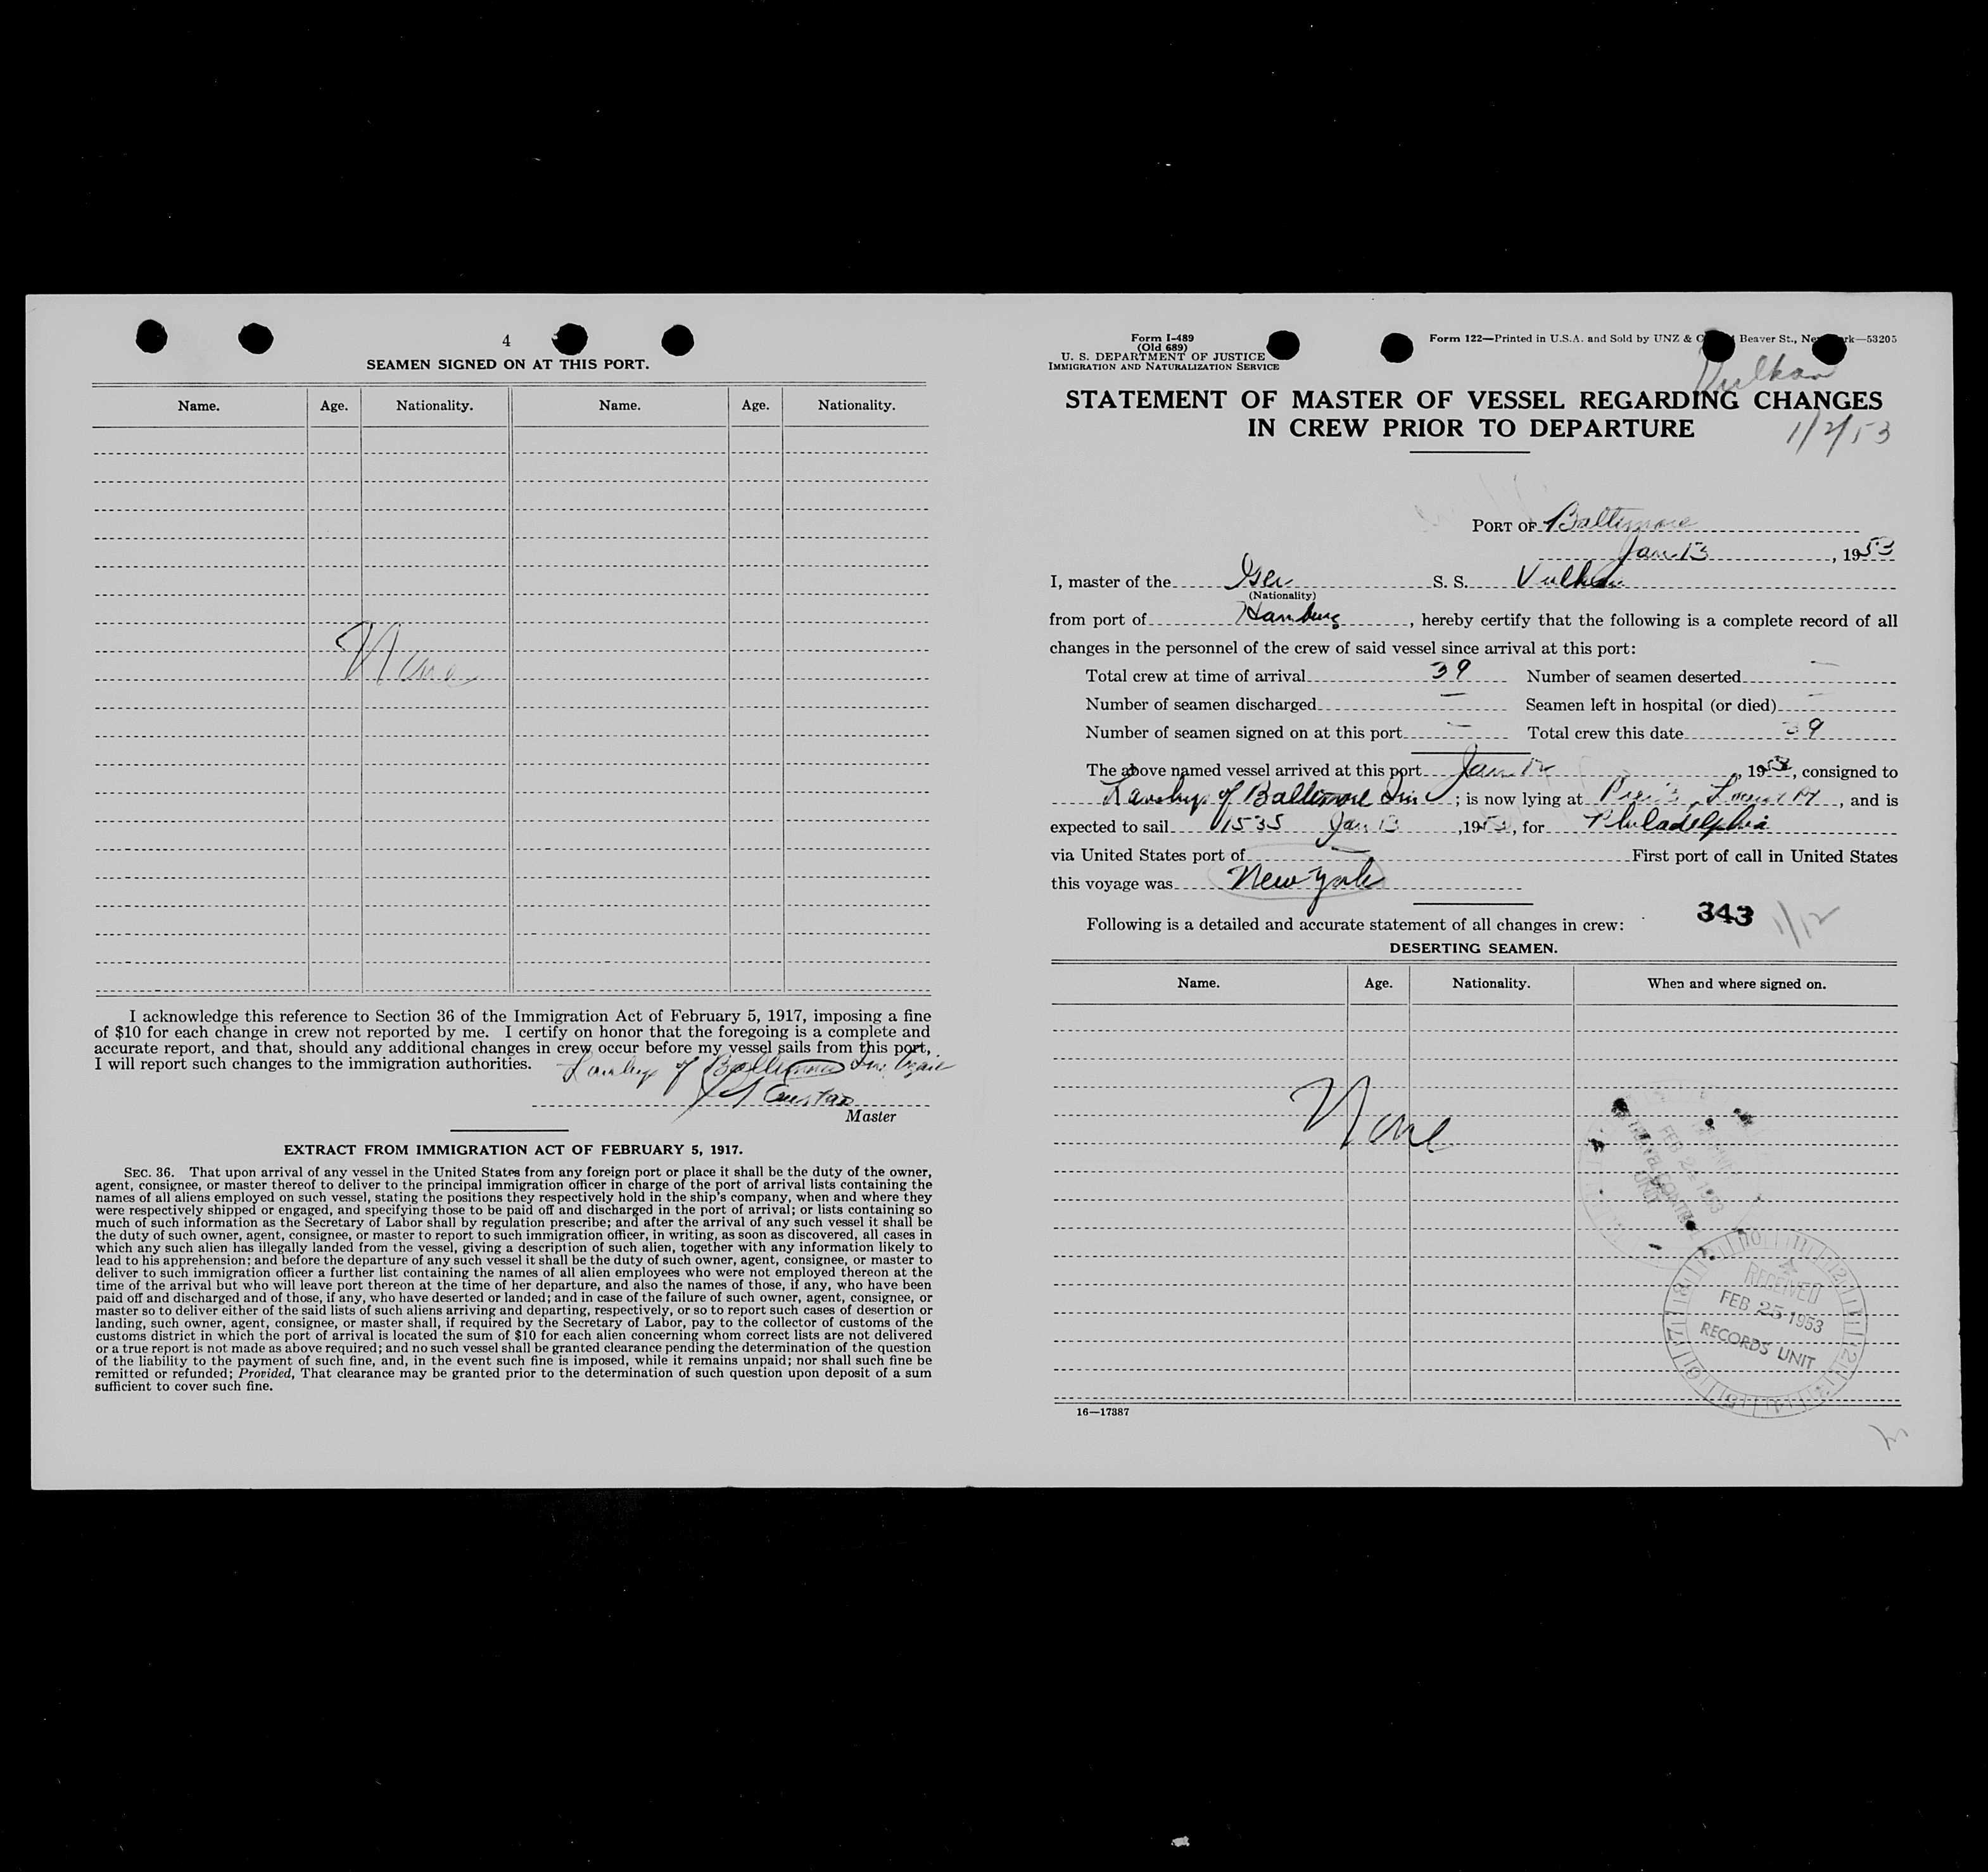 4
SEAMEN SIGNED ON AT THIS PORT.
Name. Age. Nationality. Name. Age. Nationality.
None
I acknowledge this reference to Section 36 of the Immigration Act of February 5, 1917, imposing a fine
of $10 for each change in crew not reported by me. I certify on honor that the foregoing is a complete and
accurate report, and that, should any additional changes in crew occur before my vessel sails from this port,
I will report such changes to the immigration authorities.
of Baltimore Inc
Master
EXTRACT FROM IMMIGRATION ACT OF FEBRUARY 5, 1917.
SEC. 36. That upon arrival of any vessel in the United States from any foreign port or place it shall be the duty of the owner,
agent, consignee, or master thereof to deliver to the principal immigration officer in charge of the port of arrival lists containing the
names of all aliens employed on such vessel, stating the positions they respectively hold in the ship's company, when and where they
were respectively shipped or engaged, and specifying those to be paid off and discharged in the port of arrival; or lists containing so
much of such information as the Secretary of Labor shall by regulation prescribe; and after the arrival of any such vessel it shall be
the duty of such owner, agent, consignee, or master to report to such immigration officer, in writing, as soon as discovered, all cases in
which any such alien has illegally landed from the vessel, giving a description of such alien, together with any information likely to
lead to his apprehension; and before the departure of any such vessel it shall be the duty of such owner, agent, consignee, or master to
deliver to such immigration officer a further list containing the names of all alien employees who were not employed thereon at the
time of the arrival but who will leave port thereon at the time of her departure, and also the names of those, if any, who have been
paid off and discharged and of those, if any, who have deserted or landed; and in case of the failure of such owner, agent, consignee, or
master so to deliver either of the said lists of such aliens arriving and departing, respectively, or so to report such cases of desertion or
landing, such owner, agent, consignee, or master shall, if required by the Secretary of Labor, pay to the collector of customs of the
customs district in which the port of arrival is located the sum of $10 for each alien concerning whom correct lists are not delivered
or a true report is not made as above required; and no such vessel shall be granted clearance pending the determination of the question
of the liability to the payment of such fine, and, in the event such fine is imposed, while it remains unpaid; nor shall such fine be
remitted or refunded; Provided, That clearance may be granted prior to the determination of such question upon deposit of a sum
sufficient to cover such fine.
Form I-489
(Old 689)
U. S. DEPARTMENT OF JUSTICE
IMMIGRATION AND NATURALIZATION SERVICE
Form 122—Printed in U.S.A. and Sold by UNZ & Beaver St., —53205
Vulkan
STATEMENT OF MASTER OF VESSEL REGARDING CHANGES
IN CREW PRIOR TO DEPARTURE
1/2/53
PORT OF Baltimore
Jan 13, 1953
I, master of the Ger S. S. Vulkan
(Nationality)
from port of Hamburg, hereby certify that the following is a complete record of all
changes in the personnel of the crew of said vessel since arrival at this port:
Total crew at time of arrival 39 Number of seamen deserted —
Number of seamen discharged — Seamen left in hospital (or died) —
Number of seamen signed on at this port — Total crew this date 39
The above named vessel arrived at this port Jan 12, 1953, consigned to
of Baltimore Inc; is now lying at , and is
expected to sail 1535 Jan 13, 1953, for Philadelphia
via United States port of — First port of call in United States
this voyage was New York
343 1/12
Following is a detailed and accurate statement of all changes in crew:
DESERTING SEAMEN.
Name. Age. Nationality. When and where signed on.
None
FEB 24 1953
UNIT
RECEIVED
FEB 25 1953
RECORDS UNIT
16—17387